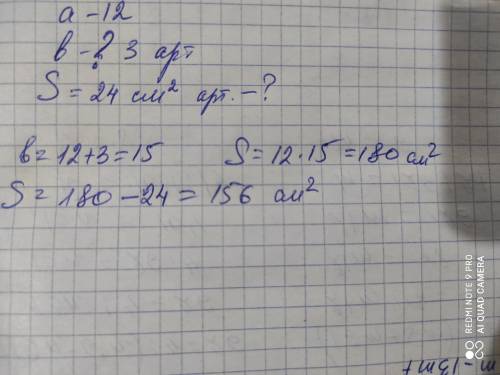 a - 12
в - ? 3 арт
S = 24 см² арт. - ?
в = 12+3 = 15 S = 12·15 = 180 см²
S = 180 - 24 = 156 см²
REDMI NOTE 9 PRO
AI QUAD CAMERA